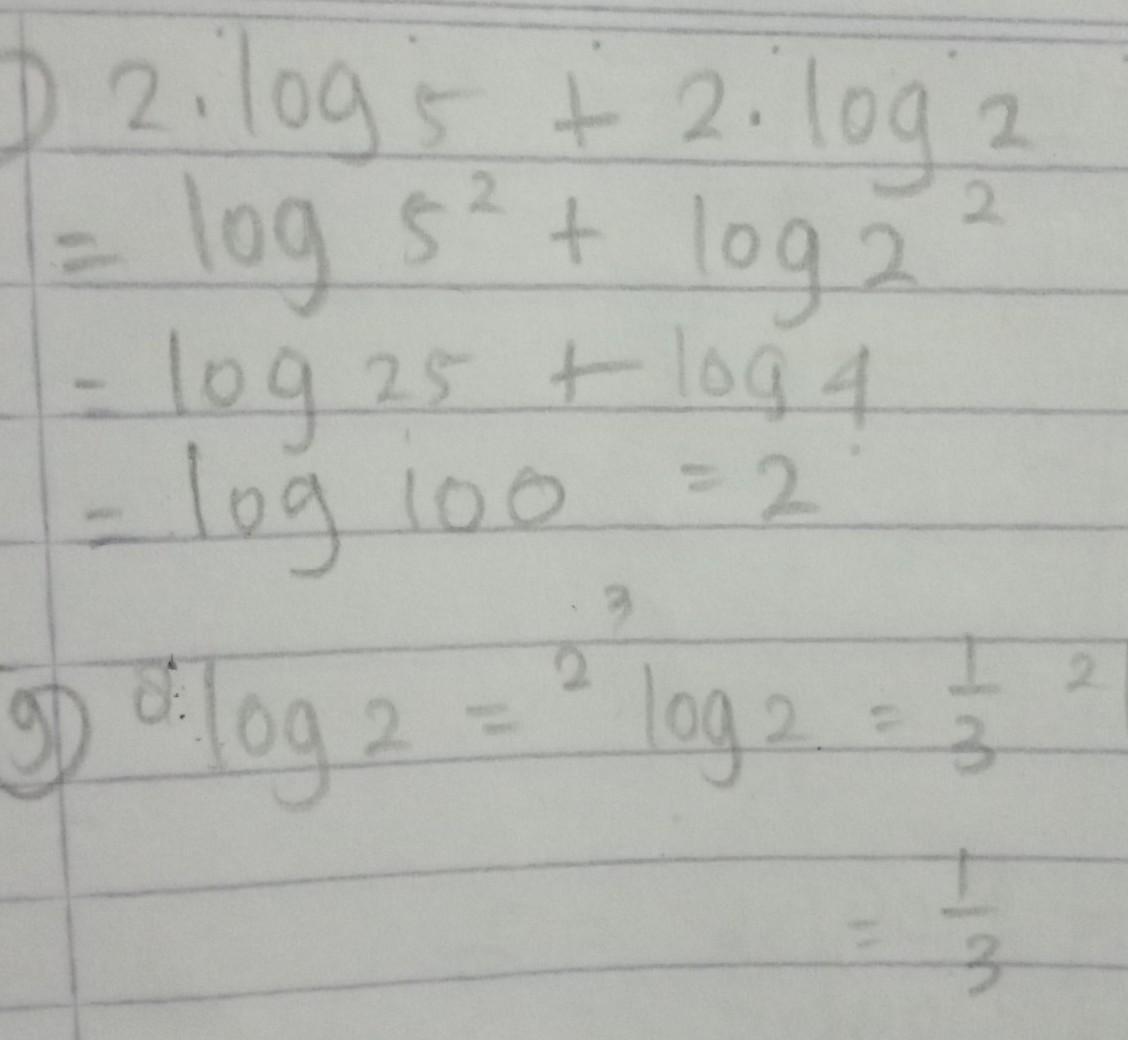 ) 2.log 5 + 2.log 2
= log 5² + log 2²
= log 25 + log 4
= log 100 = 2
g) ⁸log 2 = ²^³ log 2 = 1/3 ²
= 1/3